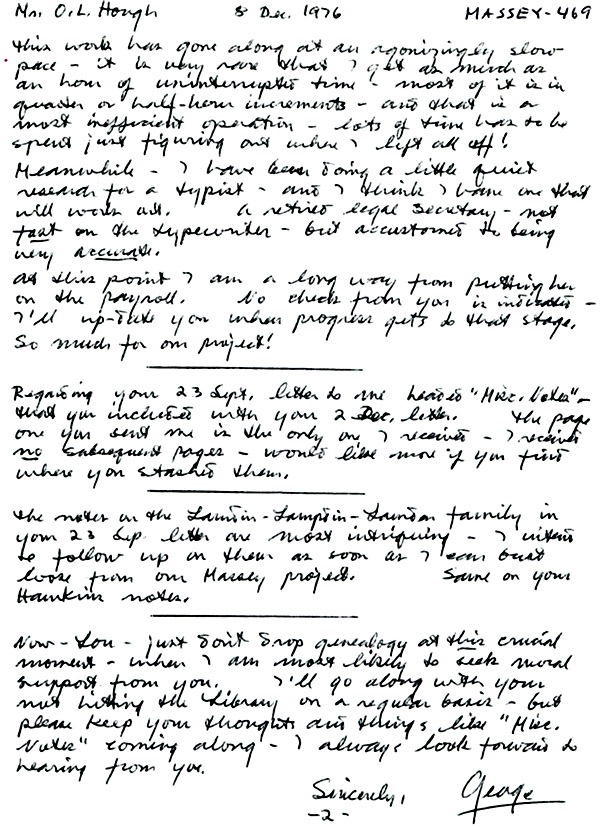 Mrs. O.L. Hough 8 Dec. 1976 MASSEY-469
This work has gone along at an agonizingly slow
pace - it is very rare that I get as much as
an hour of uninterrupted time - most of it is in
quarter or half-hour increments - and that is a
most inefficient operation - lots of time has to be
spent just figuring out where I left all off!
Meanwhile - I have been doing a little quiet
research for a typist - and I think I have one that
will work out. A retired legal secretary - not
fast on the typewriter - but accustomed to being
very accurate.
At this point I am a long way from putting her
on the payroll. No check from you is indicated -
I'll up-date you when progress gets to that stage.
So much for our project!
Regarding your 23 Sept. letter to me headed "Misc. Notes" -
that you included with your 2 Dec. letter. The page
one you sent me is the only one I received - I received
no subsequent pages - would like more if you find
where you stashed them.
The notes on the Lamdin-Lampdin-Lamdan family in
your 23 Sep. letter are most intriguing - I intend
to follow up on them as soon as I can bust
loose from our Massey project. Same on your
Hawkins notes.
Now - Lou - just don't drop genealogy at this crucial
moment - when I am most likely to seek moral
support from you. I'll go along with your
not hitting the Library on a regular basis - but
please keep your thoughts and things like "Misc.
Notes" coming along - I always look forward to
hearing from you.
Sincerely, George
-2-